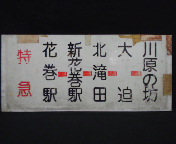 川原の坊
大迫
北滝田
新花巻駅
花巻駅
特急